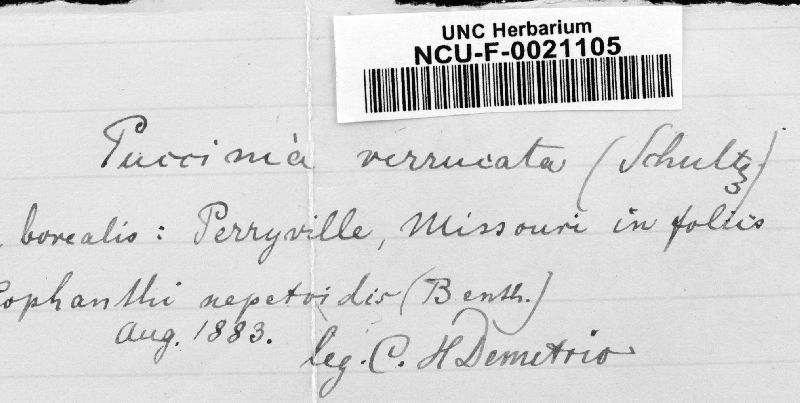 UNC Herbarium
NCU-F-0021105
Puccinia verrucata (Schultz)
borealis: Perryville, Missouri in foliis
Lophanthi nepetoidis (Benth.)
Aug. 1883.
leg. C. H Demetrio